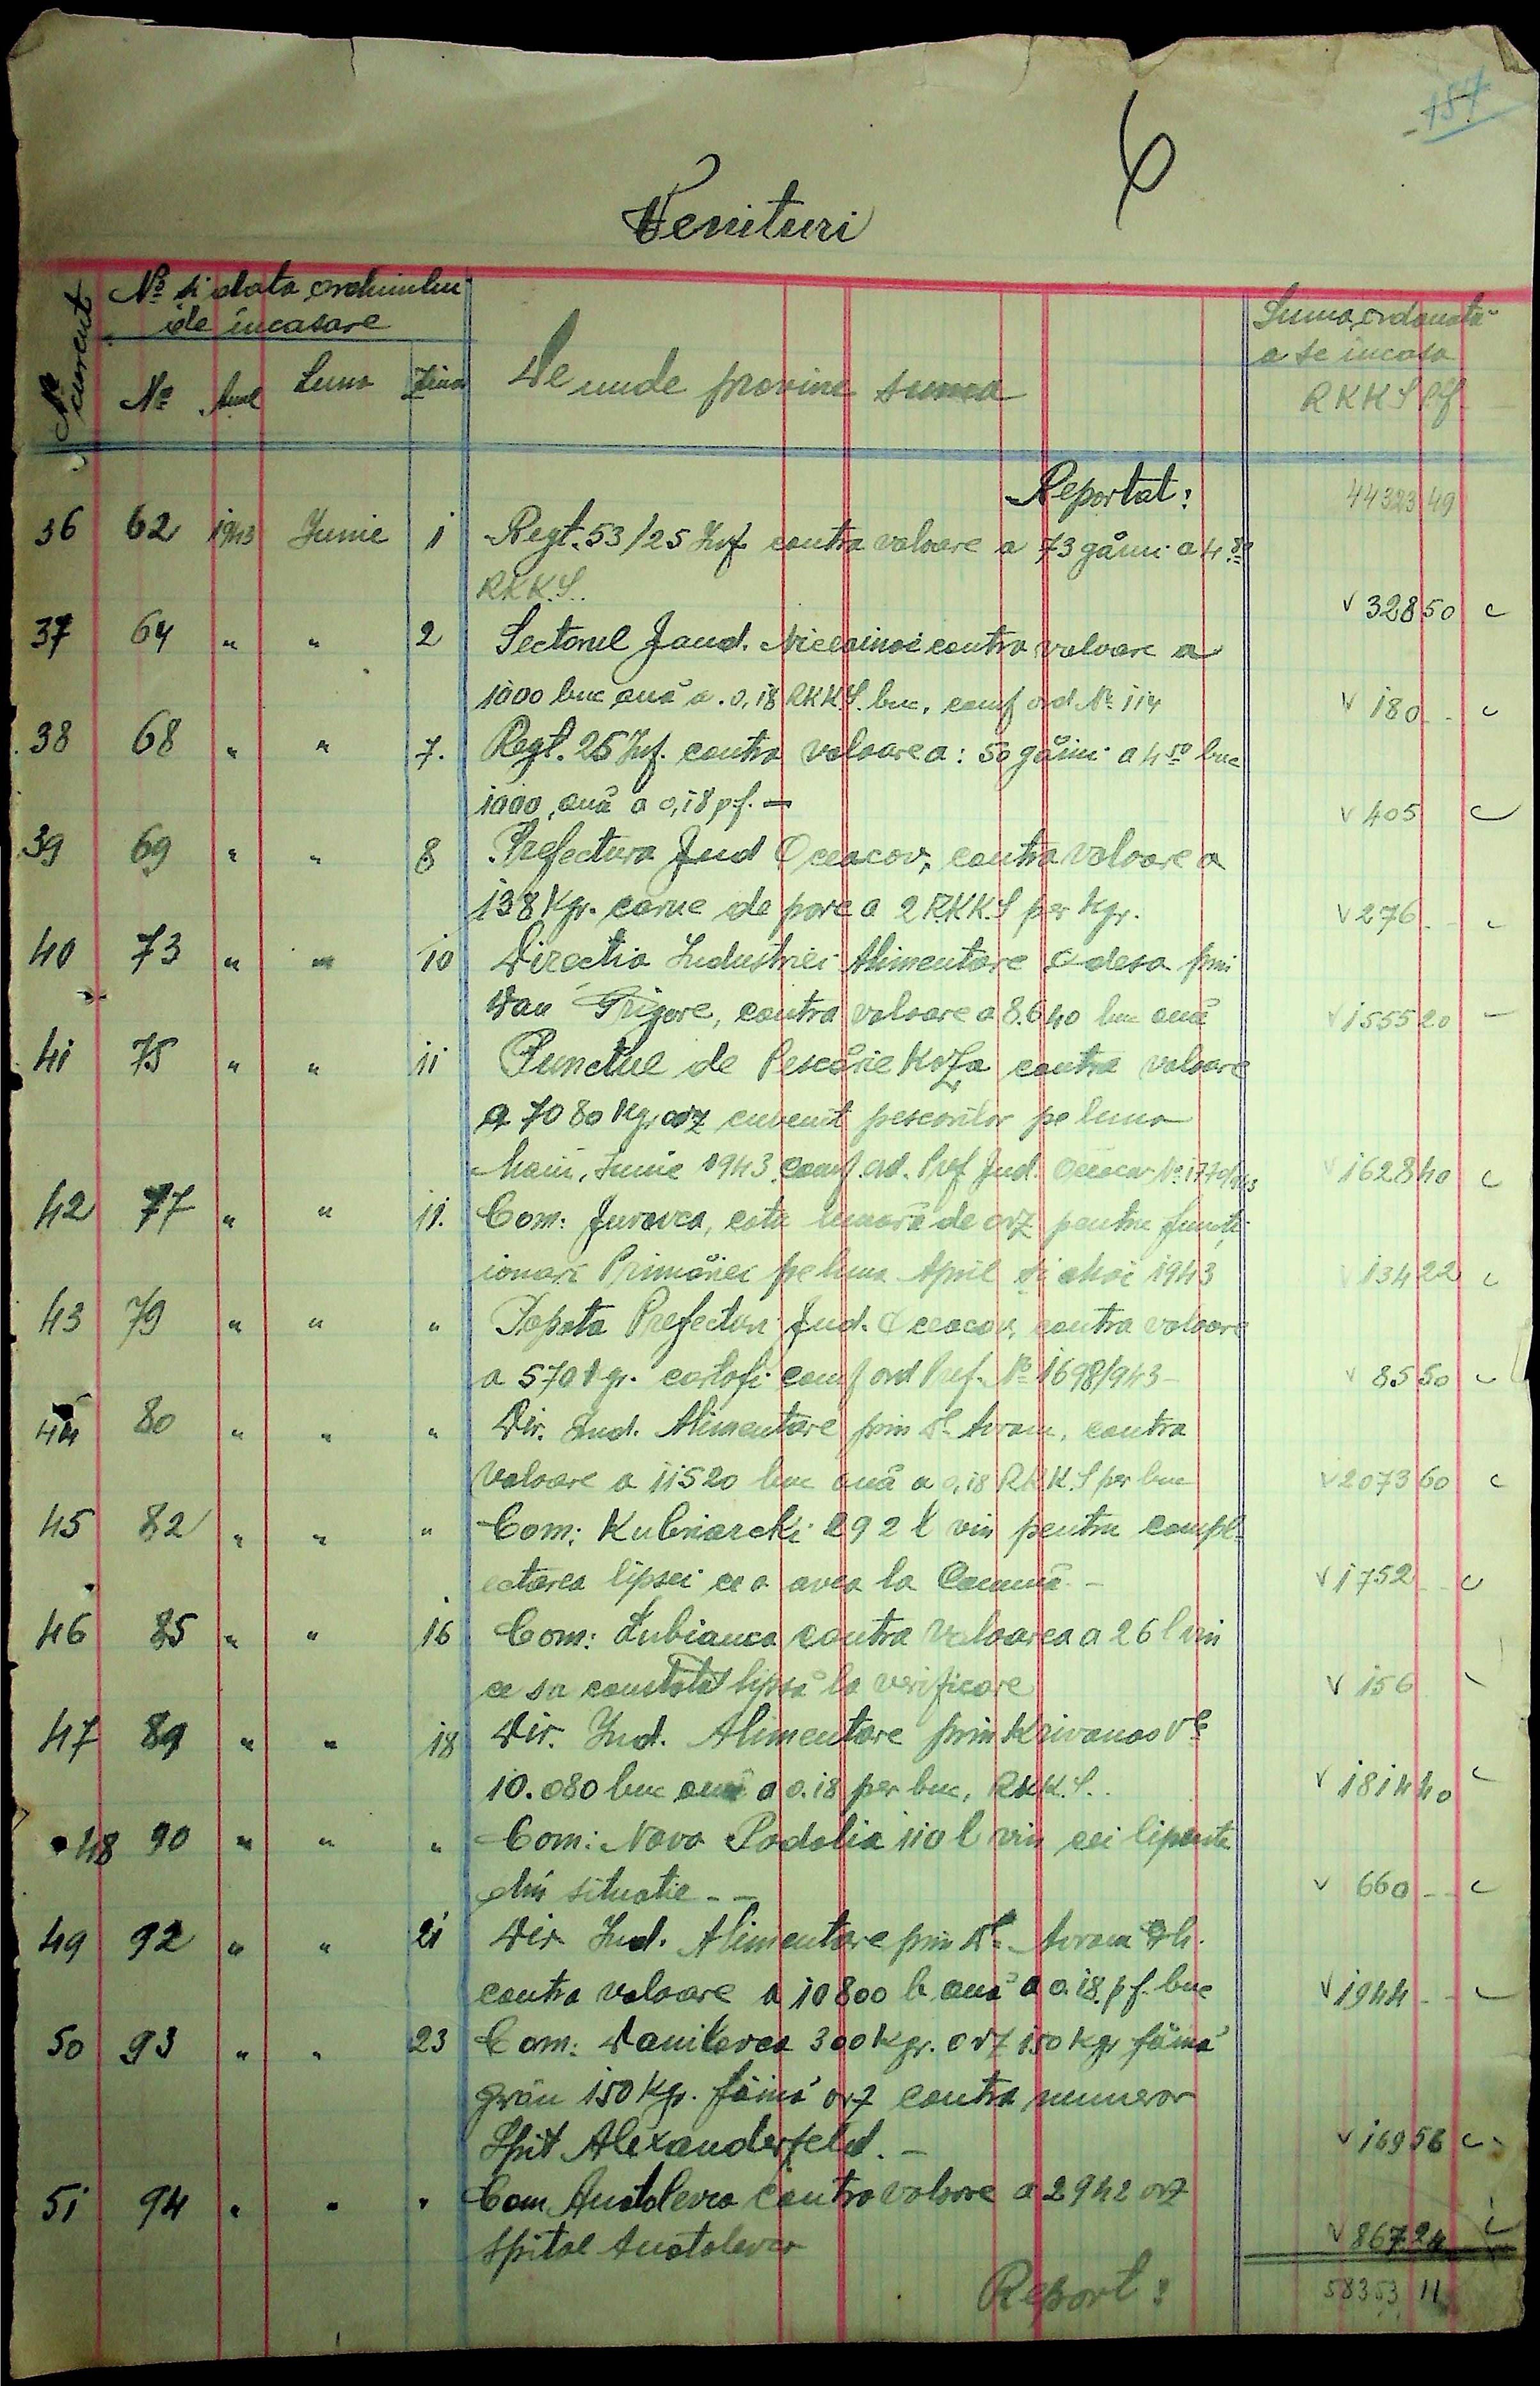 187
6
Venituri
Nº current
Nº și data ordinului
de încasare
Nº Anul Luna Ziua
De unde provine suma
Suma ordonată
a se încasa
RKKS Pf.
Reportat: 44323 49
36 62 1943 Iunie 1 Regt. 53/25 Inf. contra valoare a 73 găini a 4.50
RKKS.. v 328 50
37 64 " " 2 Sectorul Jand. contra valoare a
1000 buc ouă a 0,18 RKKS. buc, conf ord Nº 114 v 180
38 68 " " 7. Regt. 25 Inf. contra valoare a: 50 găini a 4 50 buc
1000, ouă a 0,18 pf. — v 405
39 69 " " 8 Prefectura Jud Oceacov, contra valoare a
138 Kgr. carne de porc a 2 RKKS per Kgr. v 276
40 73 " " 10 Directia Industriei Alimentare Odesa prin
Dan Grigore, contra valoare a 8.640 buc ouă v 1555 20
41 75 " " 11 Punctul de Pescărie contra valoare
a 7080 Kgr orz cuvenit pescarilor pe luna
Maiu, Iunie 1943 conf. ord. Pref Jud. Oceacov Nº 1770/943 v 1628 40
42 77 " " 11. Com: Juravca, cota lunară de orz pentru funcți
ionari Primăriei pe luna April și Mai 1943 134 22
43 79 " " " Popota Prefecturi Jud. Oceacov, contra valoare
a 570 Kgr. cartofi conf ord Pref. Nº 1698/943 — v 85 50
44 80 " " " Dir. Ind. Alimentare prin Dl Avram, contra
valoare a 11520 buc ouă a 0,18 RKKS per buc v 2073 60
45 82 " " " Com: 292 l vin pentru compl
ectarea lipsei ce a avea la Comună — v 1752
46 85 " " 16 Com: Lubianca contra valoarea a 26 l vin
ce sa constatat lipsă la verificare v 156
47 89 " " 18 Dir. Ind. Alimentare prin Krivanos
10.080 buc ouă a 0.18 per buc, RKKS.. v 1814 40
48 90 " " " Com: Novo Podolia 110 l vin cei lipsite
din situatie - — v 660
49 92 " " 21 Dir Ind. Alimentare prin Dl Avram Gh.
contra valoare a 10800 b ouă a 0.18 pf. buc v 1944
50 93 " " 23 Com: Danilovca 300 Kgr. orz 150 Kgr făină
grâu 150 Kgr. făină orz contra numerar
Spit Alexanderfeld. — v 169 56
51 94 " " " Com Anatolevca contra valoare a 2942 orz
Spital Anatolevca v 867 24
Report: 58353 11